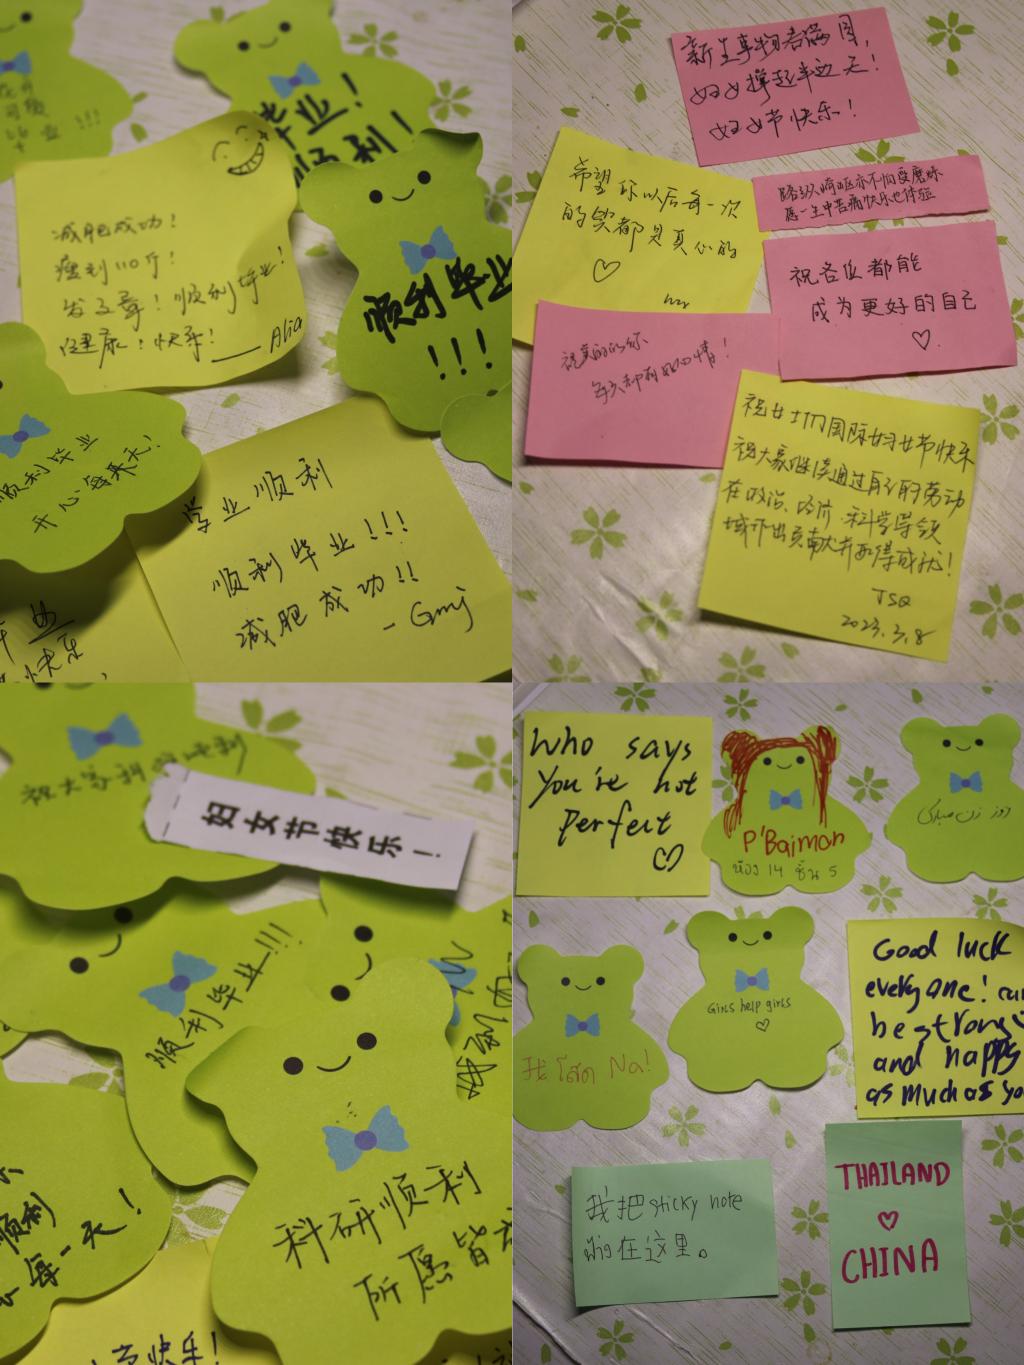 毕业!
顺利!
减肥成功!
瘦到110斤!
发文章!顺利毕业!
健康!快乐! —— Alia
顺利毕业
!!!
顺利毕业
开心每一天!
学业顺利
顺利毕业!!!
减肥成功!!
- Gmj
业
快乐
新生事物若满目,
妇女撑起半边天!
妇女节快乐!
希望你以后每一次
的笑都是真心的
♡
路纵崎岖亦不怕受磨练
愿一生中苦痛快乐也体验
祝各位都能
成为更好的自己
♡
每天都有好心情!
祝女士们国际妇女节快乐
祝大家继续通过自己的劳动
在政治、经济、科学等领
域作出贡献并取得成就!
JSQ
2023.3.8
祝大家科研顺利
妇女节快乐!
顺利毕业!!!
顺利
每一天!
科研顺利
所愿皆
节快乐!
Who says
You're not
Perfect
♡
P'Baimon
ห้อง 14 ชั้น 5
روز زن مبارک
我 โสด Na!
Girls help girls
♡
Good luck
everyone!
be strong
and happy
as much as you
我把sticky note
贴在这里。
THAILAND
♡
CHINA